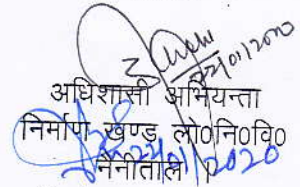 22/01/2020
अधिशासी अभियन्ता
निर्माण खण्ड लो०नि०वि०
नैनीताल